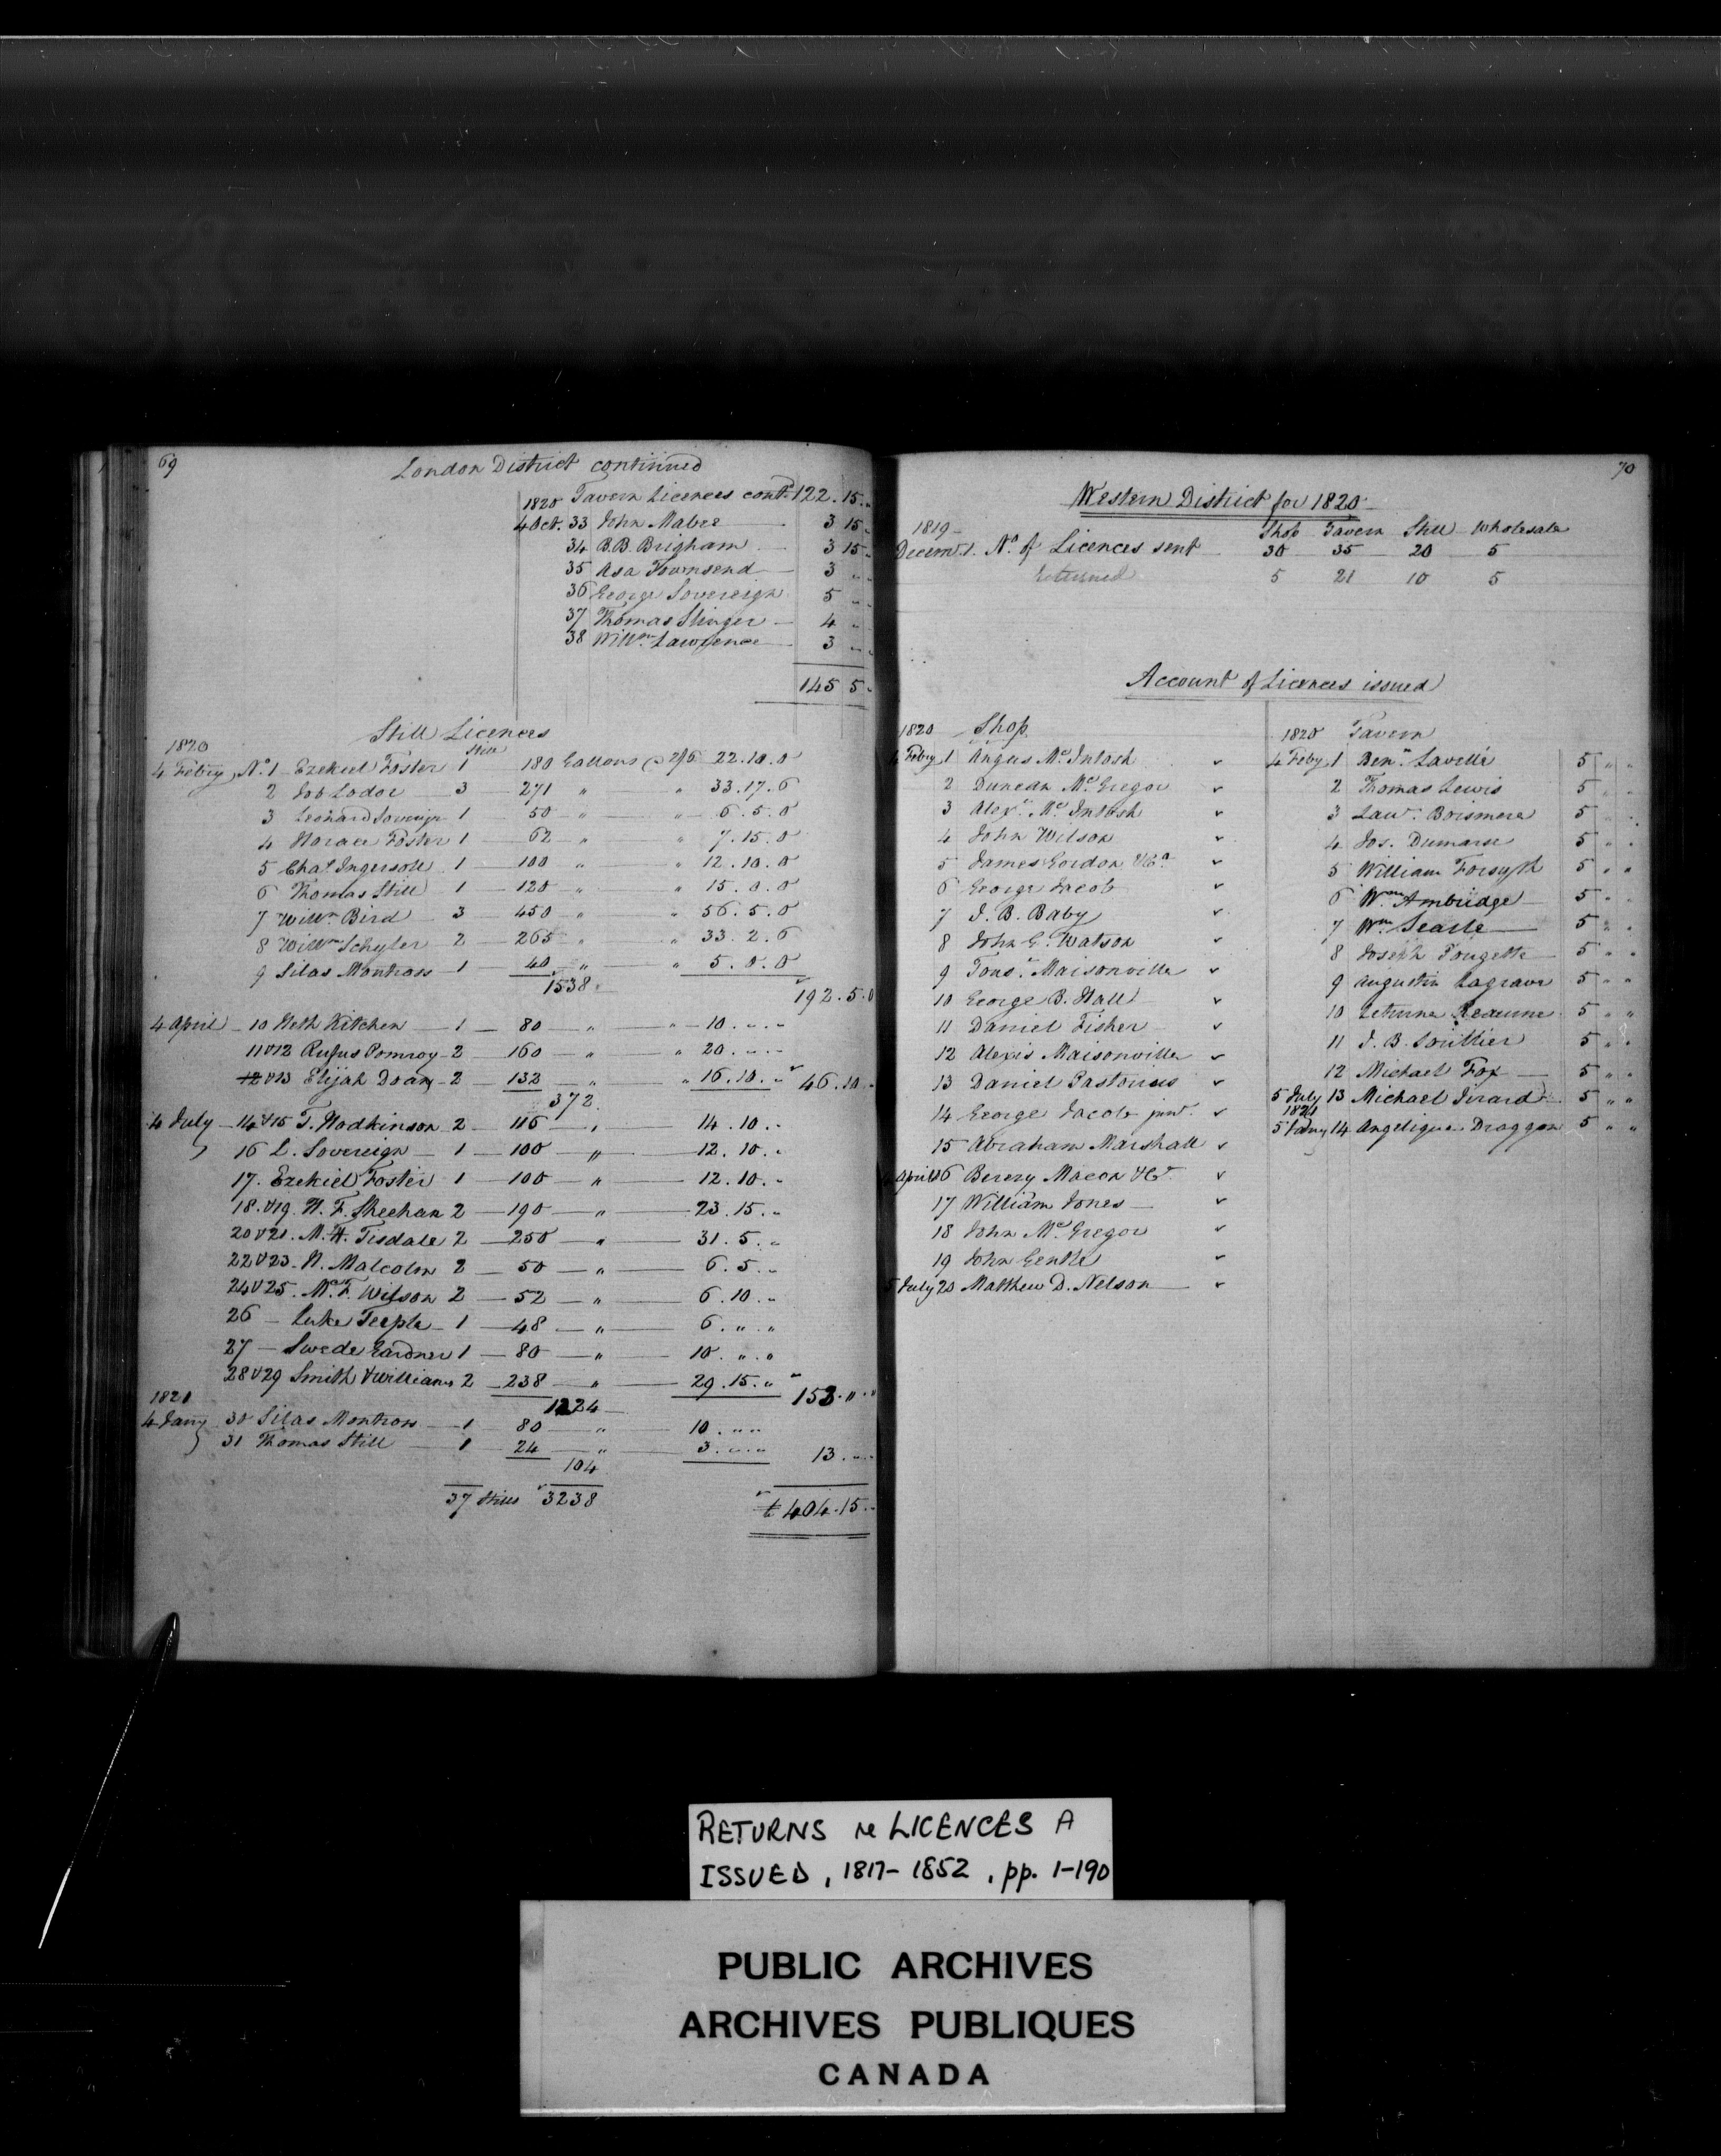 69
London District continued
1820 Tavern Licences contd. 122.15.„
4 Oct. 33 John Mabee 3 15 „
34 B.B. Brigham 3 15 „
35 Asa Townsend 3 „ „
36 George Sovereign 5 „ „
37 Thomas Slinger 4 „ „
38 Willm. Lawrence 3 „ „
145 5 „
Still Licences
1820 Still
4 Febry No. 1 Ezekiel Foster 1 180 Gallons @ 2/6 22.10.0
2 Job Lodor 3 271 „ „ 33.17.6
3 Leonard Sovereign 1 50 „ „ 6.5.0
4 Horace Foster 1 62 „ „ 7.15.0
5 Chas. Ingersoll 1 100 „ „ 12.10.0
6 Thomas Still 1 120 „ „ 15.0.0
7 Willm. Bird 3 450 „ „ 56.5.0
8 Willm. Schyler 2 265 „ „ 33.2.6
9 Silas Montross 1 40 „ „ 5.0.0
1538 192.5.0
4 April 10 Heth Kitchen 1 80 „ „ 10.„.„
11 & 12 Rufus Pomroy 2 160 „ „ 20.„.„
12 & 13 Elijah Doan 2 132 „ „ 16.10.„ 46.10.„
372
4 July 14 & 15 T. Hodkinson 2 116 „ 14.10.„
16 L. Sovereign 1 100 „ 12.10.„
17. Ezekiel Foster 1 100 „ 12.10.„
18. & 19. W. F. Sheehan 2 190 „ 23.15.„
20 & 21. M. W. Tisdale 2 250 „ 31.5.„
22 & 23. N. Malcolm 2 50 „ 6.5.„
24 & 25. Mc. F. Wilson 2 52 „ 6.10.„
26 Luke Teeple 1 48 „ 6.„.„
27 Swede Gardner 1 80 „ 10.„.„
28 & 29 Smith & Williams 2 238 „ 29.15.„ 153.„.„
1821 1224
4 Jany 30 Silas Montross 1 80 „ 10.„.„
31 Thomas Still 1 24 „ 3.„.„ 13.„.„
104
37 Stills 3238 £404.15.„
70
Western District for 1820
1819 Shop Tavern Still Wholesale
Decemr. 1. No. of Licences sent 30 35 20 5
Returned 5 21 10 5
Account of Licences issued
1820 Shop
4 Febry 1 Angus Mc.Intosh
2 Duncan Mc.Gregor
3 Alexr. Mc.Intosh
4 John Wilson
5 James Gordon & Co.
6 George Jacob
7 J. B. Baby
8 John G. Watson
9 Touss. Maisonville
10 George B. Hall
11 Daniel Fisher
12 Alexis Maisonville
13 Daniel Pastorius
14 George Jacob junr.
15 Abraham Marshall
4 April 16 Berezy Macon & Co.
17 William Jones
18 John Mc.Gregor
19 John Gentle
5 July 20 Matthew D. Nelson
1820 Tavern
4 Feby 1 Benn. Lavalle 5 „ „
2 Thomas Lewis 5 „ „
3 Lawr. Boismere 5 „ „
4 Jos. Dumars 5 „ „
5 William Forsyth 5 „ „
6 Wm. Ambridge 5 „ „
7 Wm. Searle 5 „ „
8 Joseph Pougette 5 „ „
9 Augustin Lagrave 5 „ „
10 Etienne Reaume 5 „ „
11 J. B. Souillier 5 „ „
12 Michael Fox 5 „ „
5 July 13 Michael Girard 5 „ „
1821
5 Jany 14 Angelique Draggon 5 „ „
RETURNS re LICENCES A
ISSUED, 1817-1852, pp. 1-190
PUBLIC ARCHIVES
ARCHIVES PUBLIQUES
CANADA